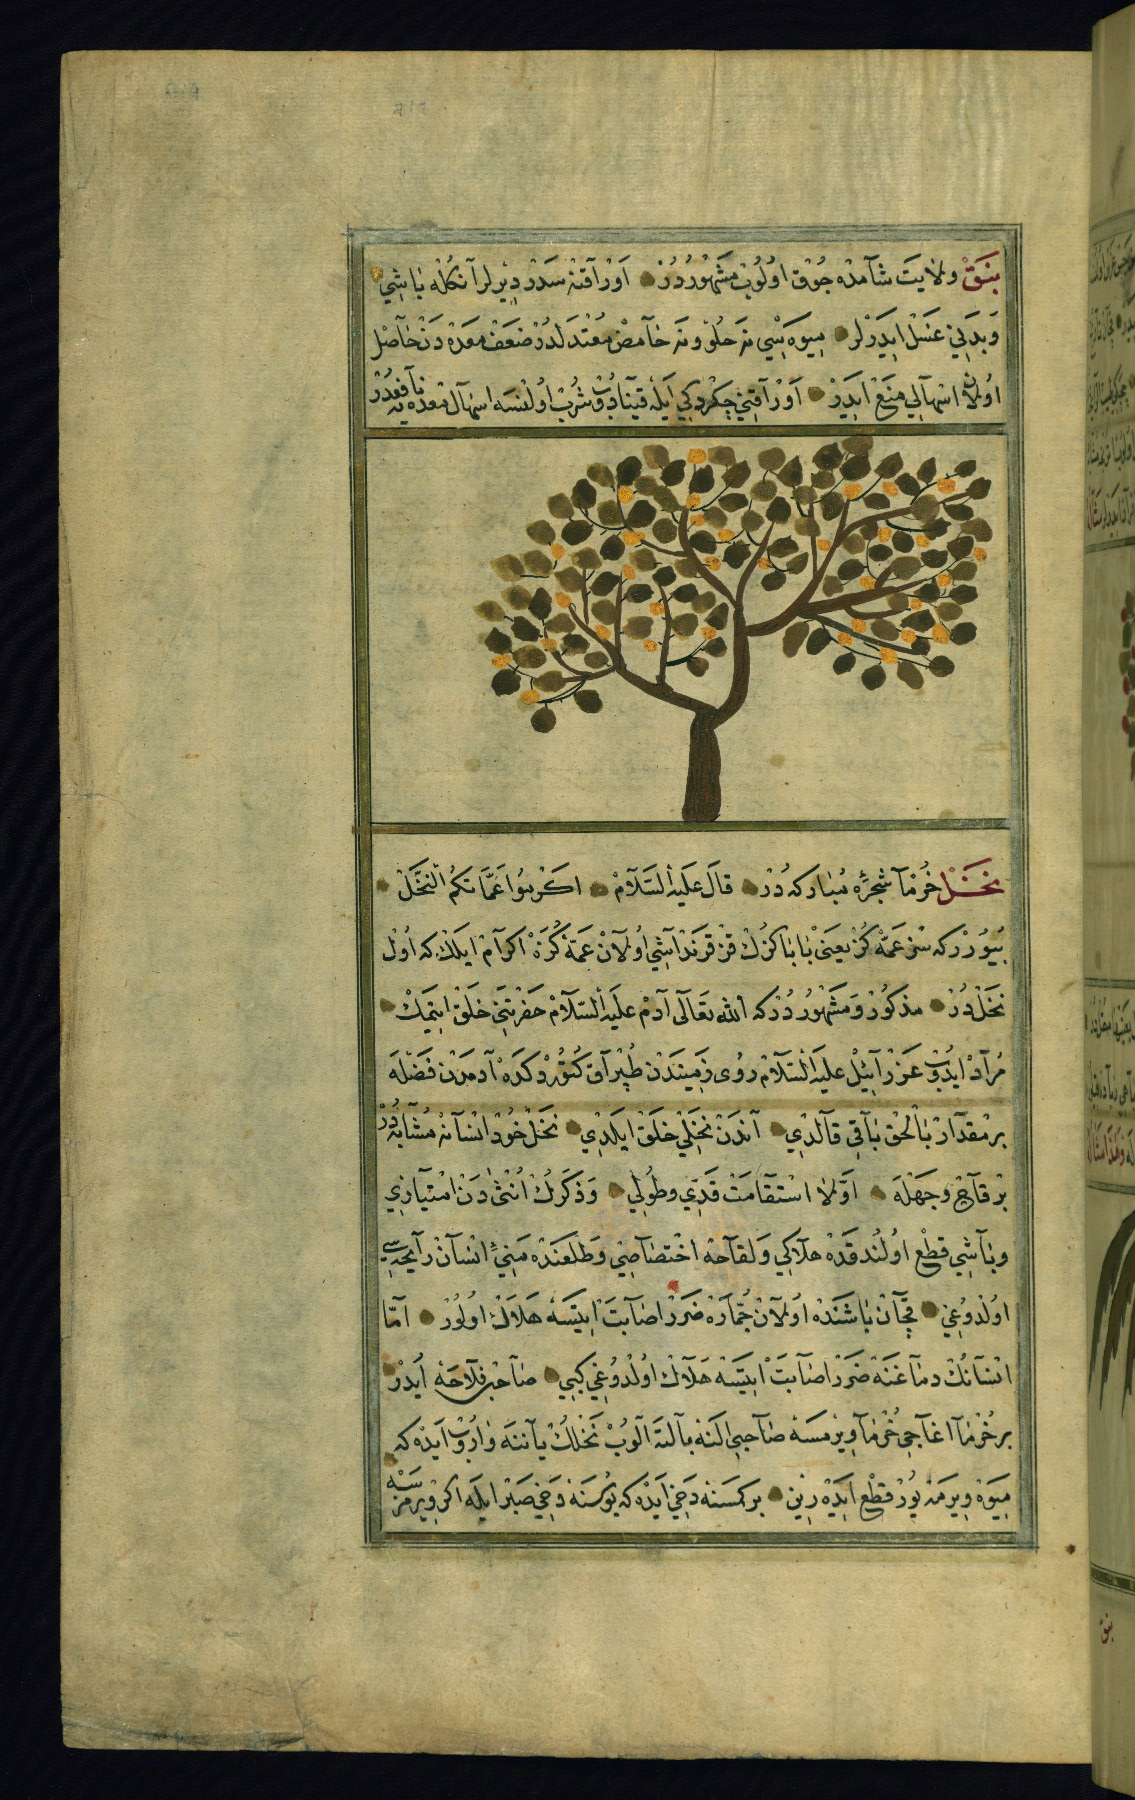 نبق ولايت شامده چوق اولوب مشهوردر اوراقنه سدر ديرلر آنكله باشي
وبدني غسل ايدرلر ميوه سي نه حلو ونه حامض معتدلدر ضعف معده دن حاصل
اولان اسهالي منع ايدر اوراقني چكردكي ايله قينادوب شرب اولنسه اسهال معده يه نافعدر
نخل خرما شجره مباركه در قال عليه السلام اكرموا عماتكم النخل
بيوررکه سز عمه كز يعني باباكزك قز قرنداشي اولان عمه كزه اكرام ايلك كه اول
نخلدر مذكور ومشهوردركه الله تعالى آدم عليه السلام حضرتني خلق ايتمك
مراد ايدوب عزرائيل عليه السلام روى زمیندن طپراق كتوردكده آدمدن فضله
بر مقدار بالچق باقي قالدي آندن نخلي خلق ايلدي نخل خود انسانه مشابهدر
بر قاچ وجهله اولا استقامت قدي وطولي وذكرك انثادن امتيازي
وباشي قطع اولندقده هلاكي ولقاحه اختصاصي وطلعنده مني انسان رايحه سي
اولدوغي قچان باشنده اولان جماره ضرر اصابت ايتسه هلاك اولور اما
انسانك دماغنه ضرر اصابت ايتسه هلاك اولدوغي كبي صاحب فلاحه ايدر
بر خرما اغاجي خرما ويرمسه صاحبي النه بالته آلوب نخلك ياننه واروب ايده كه
ميوه ويرمه يور قطع ايده رين بر كمسنه دخي ايده كه بو سنه دخي صبر ايله اكر ويرمزسه